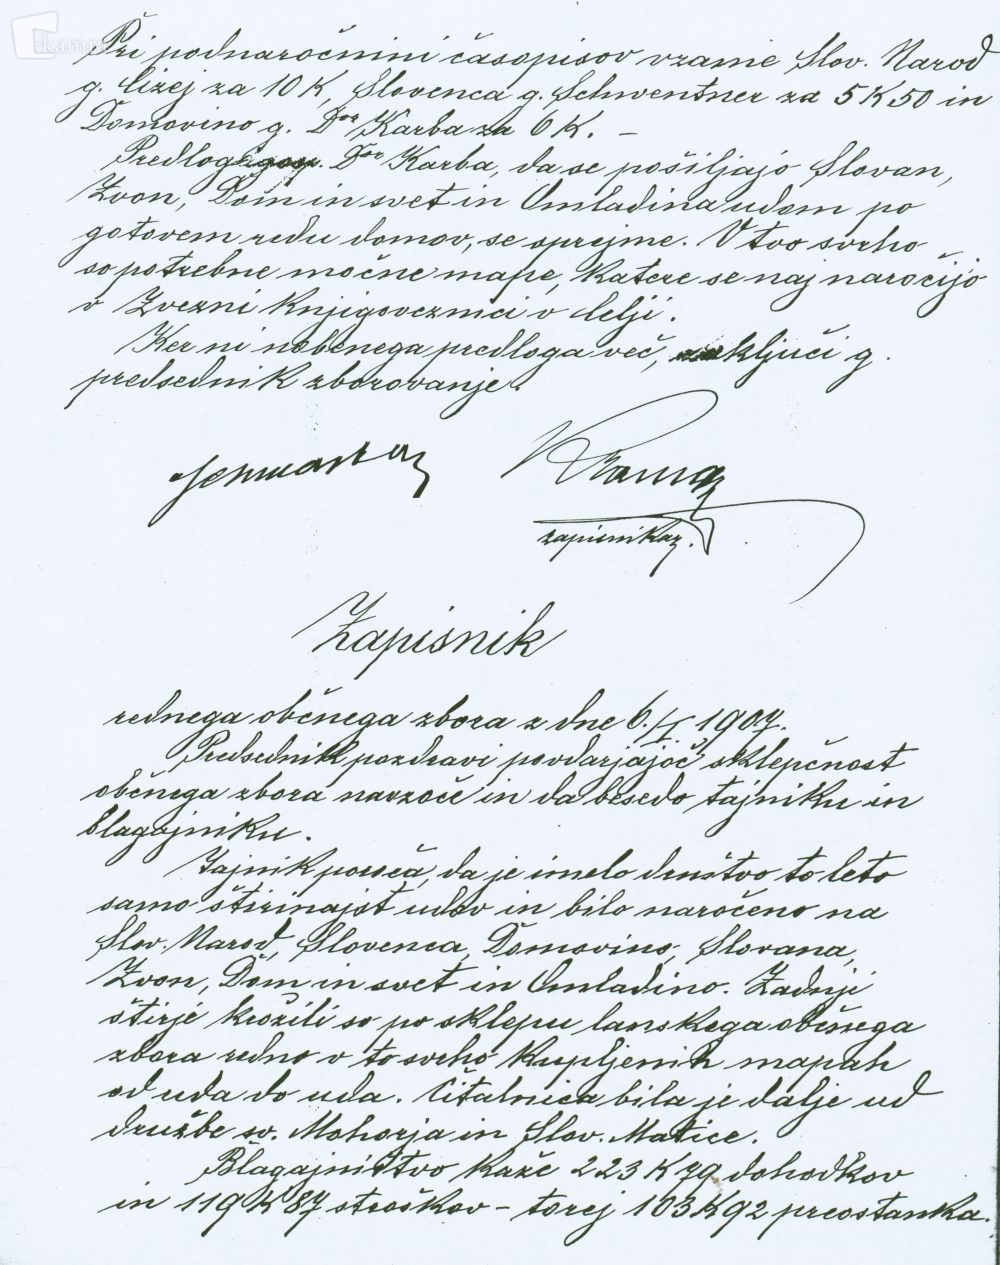 kam
Pri podnaročnini časopisov vzame Slov. Narod
g. Cizej za 10 K, Slovenca g. Schwentner za 5 K 50 in
Domovino g. Dor Karba za 6 K. –
Predlog gosp. Dor Karba, da se pošiljajo Slovan,
Zvon, Dom in svet in Omladina udom po
gotovem redu domov, se sprejme. V tvo svrho
so potrebne močne mape, katere se naj naročijo
v Zvezni knjigoveznici v Celji.
Ker ni nobenega predloga več, zaključi g.
predsednik zborovanje.
zapisnikar.
Zapisnik
rednega občnega zbora z dne 6./I. 1907.
Predsednik pozdravi povdarjajoč sklepčnost
občnega zbora navzoče in da besedo tajniku in
blagajniku.
Tajnik poroča, da je imelo društvo to leto
samo štirinajst udov in bilo naročeno na
Slov. Narod, Slovenca, Domovino, Slovana,
Zvon, Dom in svet in Omladino. Zadnji
štirje krožili so po sklepu lanskega občnega
zbora redno v to svrho kupljenih mapah
od uda do uda. Čitalnica bila je dalje ud
družbe sv. Mohorja in Slov. Matice.
Blagajništvo kaže 223 K 79 dohodkov
in 119 K 87 stroškov – torej 103 K 92 preostanka.